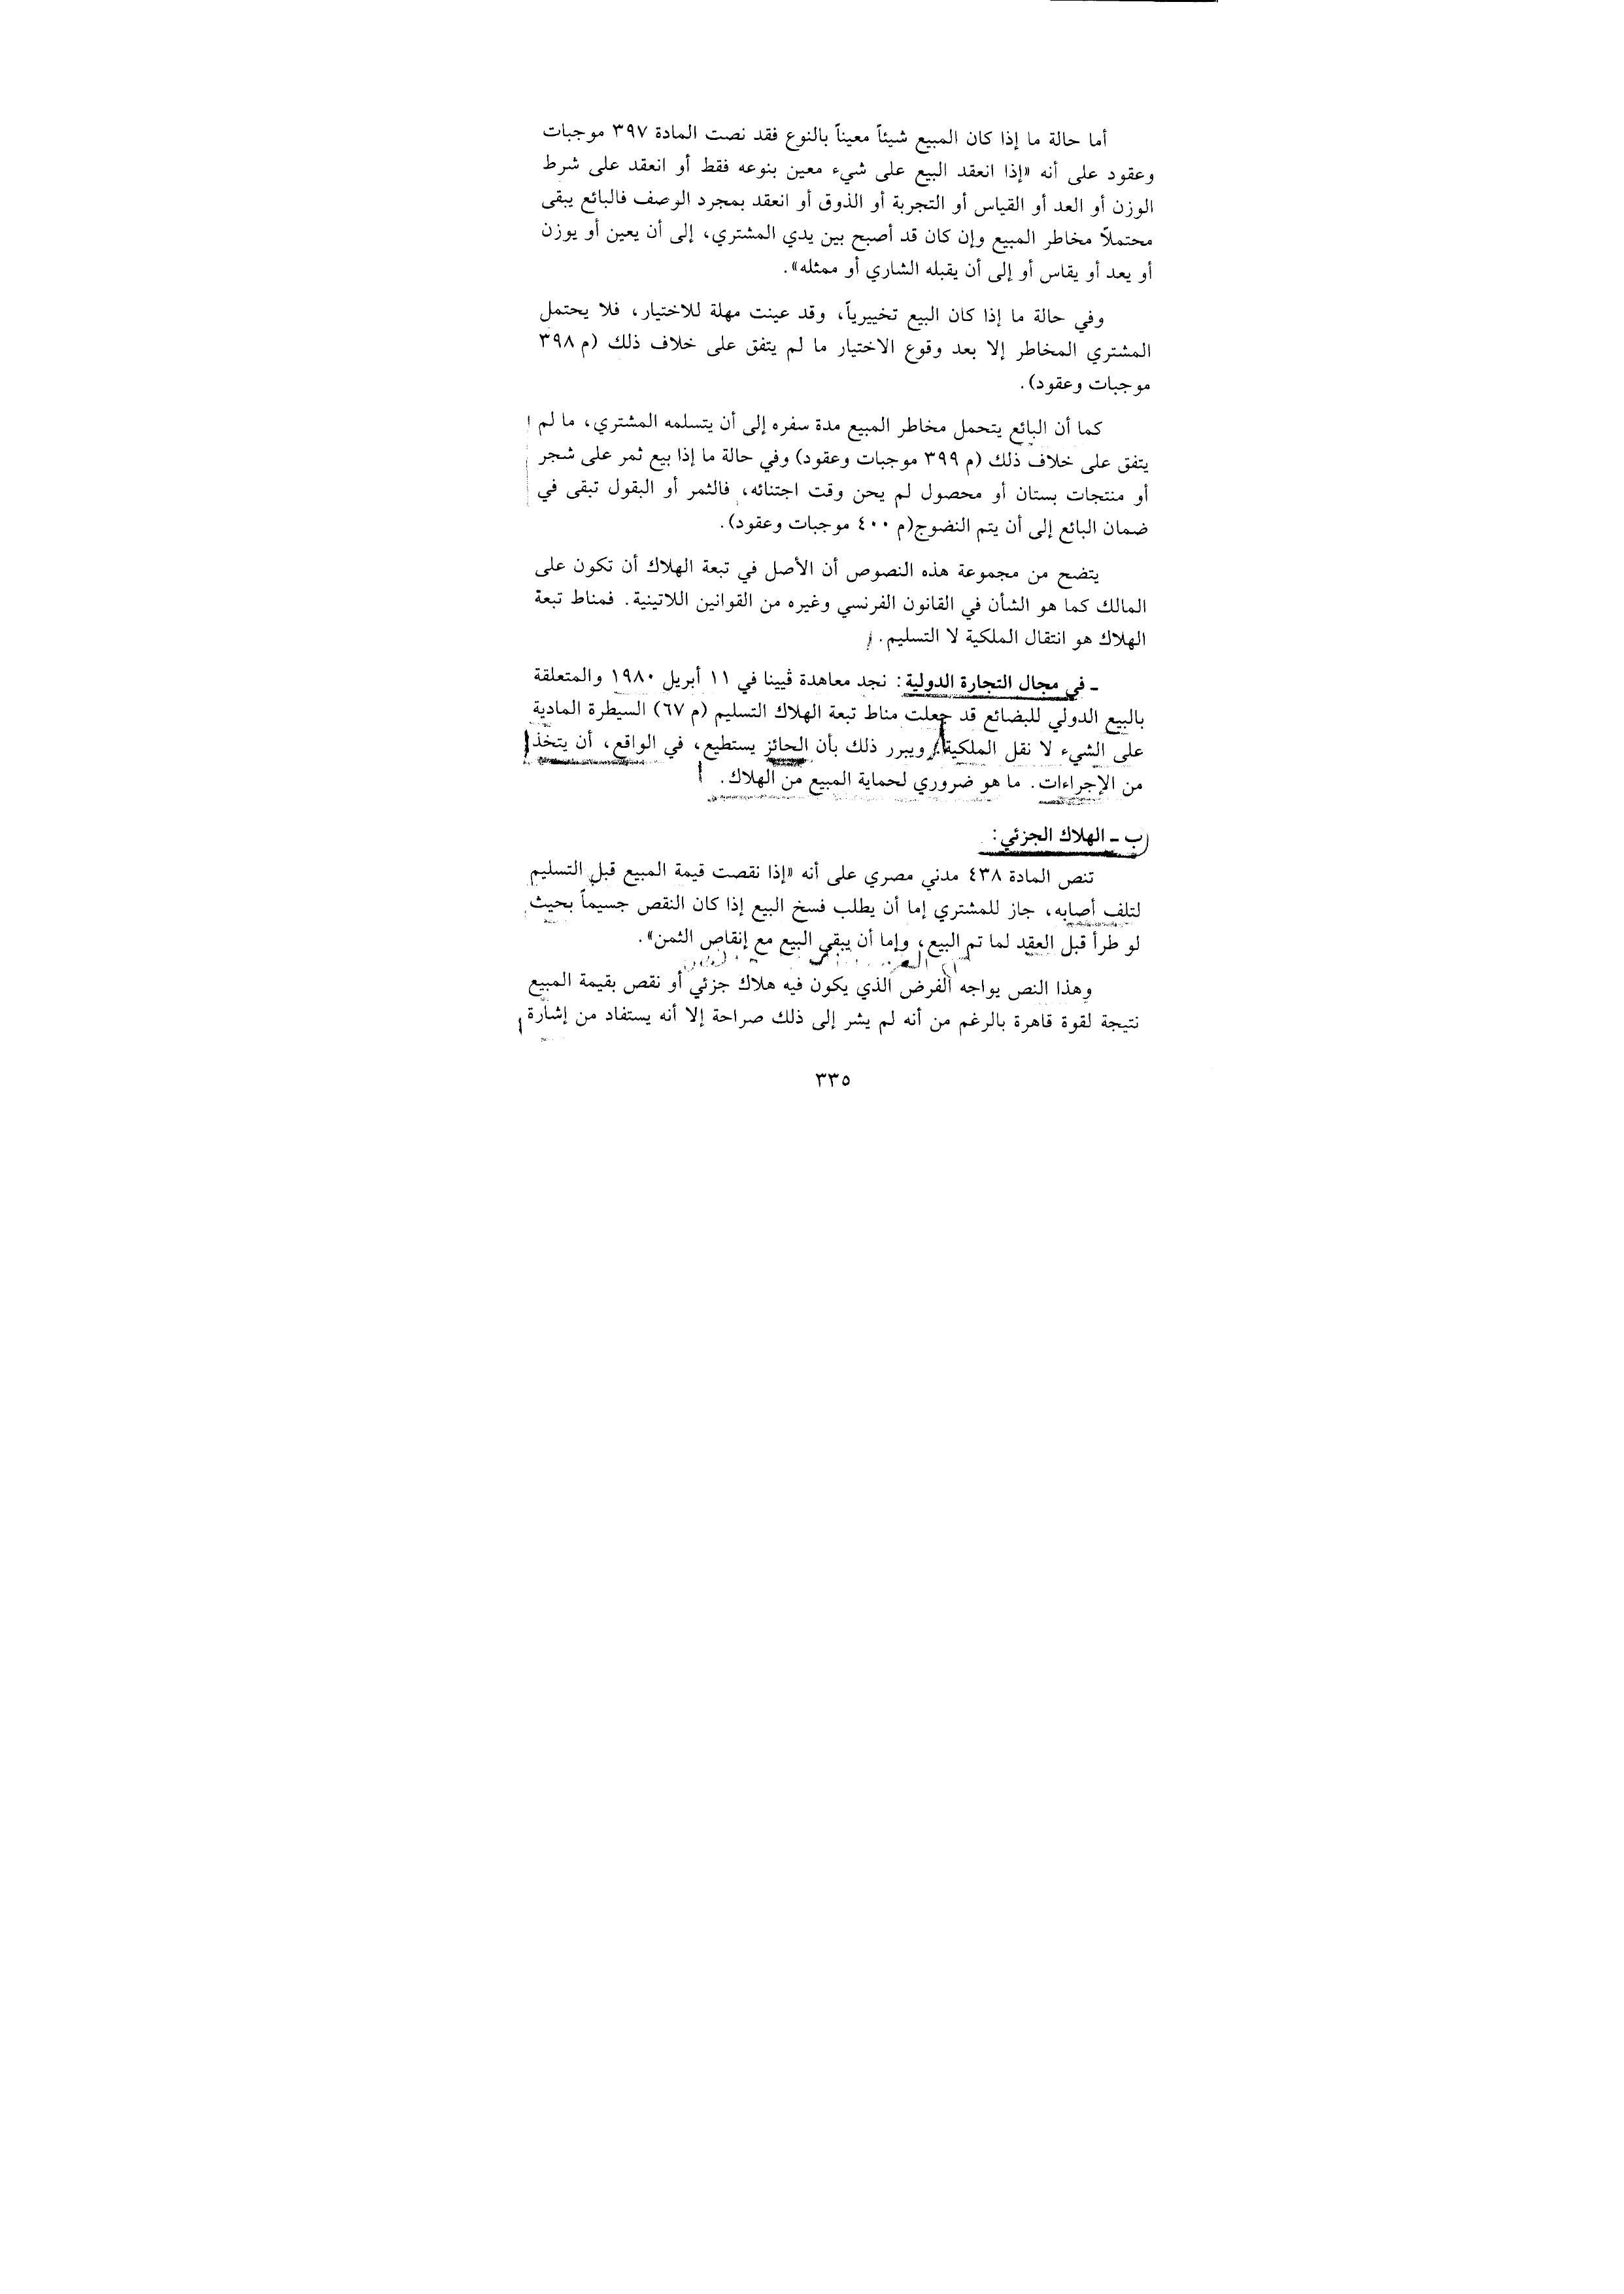 أما حالة ما إذا كان المبيع شيئاً معيناً بالنوع فقد نصت المادة ٣٩٧ موجبات
وعقود على أنه «إذا انعقد البيع على شيء معين بنوعه فقط أو انعقد على شرط
الوزن أو العد أو القياس أو التجربة أو الذوق أو انعقد بمجرد الوصف فالبائع يبقى
محتملاً مخاطر المبيع وإن كان قد أصبح بين يدي المشتري، إلى أن يعين أو يوزن
أو يعد أو يقاس أو إلى أن يقبله الشاري أو ممثله».
وفي حالة ما إذا كان البيع تخييرياً، وقد عينت مهلة للاختيار، فلا يحتمل
المشتري المخاطر إلا بعد وقوع الاختيار ما لم يتفق على خلاف ذلك (م ٣٩٨
موجبات وعقود).
كما أن البائع يتحمل مخاطر المبيع مدة سفره إلى أن يتسلمه المشتري، ما لم
يتفق على خلاف ذلك (م ٣٩٩ موجبات وعقود) وفي حالة ما إذا بيع ثمر على شجر
أو منتجات بستان أو محصول لم يحن وقت اجتنائه، فالثمر أو البقول تبقى في
ضمان البائع إلى أن يتم النضوج(م ٤٠٠ موجبات وعقود).
يتضح من مجموعة هذه النصوص أن الأصل في تبعة الهلاك أن تكون على
المالك كما هو الشأن في القانون الفرنسي وغيره من القوانين اللاتينية. فمناط تبعة
الهلاك هو انتقال الملكية لا التسليم.
ـ في مجال التجارة الدولية: نجد معاهدة ڤيينا في ١١ أبريل ١٩٨٠ والمتعلقة
بالبيع الدولي للبضائع قد جعلت مناط تبعة الهلاك التسليم (م ٦٧) السيطرة المادية
على الشيء لا نقل الملكية، ويبرر ذلك بأن الحائز يستطيع، في الواقع، أن يتخذ
من الإجراءات. ما هو ضروري لحماية المبيع من الهلاك.
ب ـ الهلاك الجزئي:
تنص المادة ٤٣٨ مدني مصري على أنه «إذا نقصت قيمة المبيع قبل التسليم
لتلف أصابه، جاز للمشتري إما أن يطلب فسخ البيع إذا كان النقص جسيماً بحيث
لو طرأ قبل العقد لما تم البيع، وإما أن يبقي البيع مع إنقاص الثمن».
وهذا النص يواجه الفرض الذي يكون فيه هلاك جزئي أو نقص بقيمة المبيع
نتيجة لقوة قاهرة بالرغم من أنه لم يشر إلى ذلك صراحة إلا أنه يستفاد من إشارة
٣٣٥